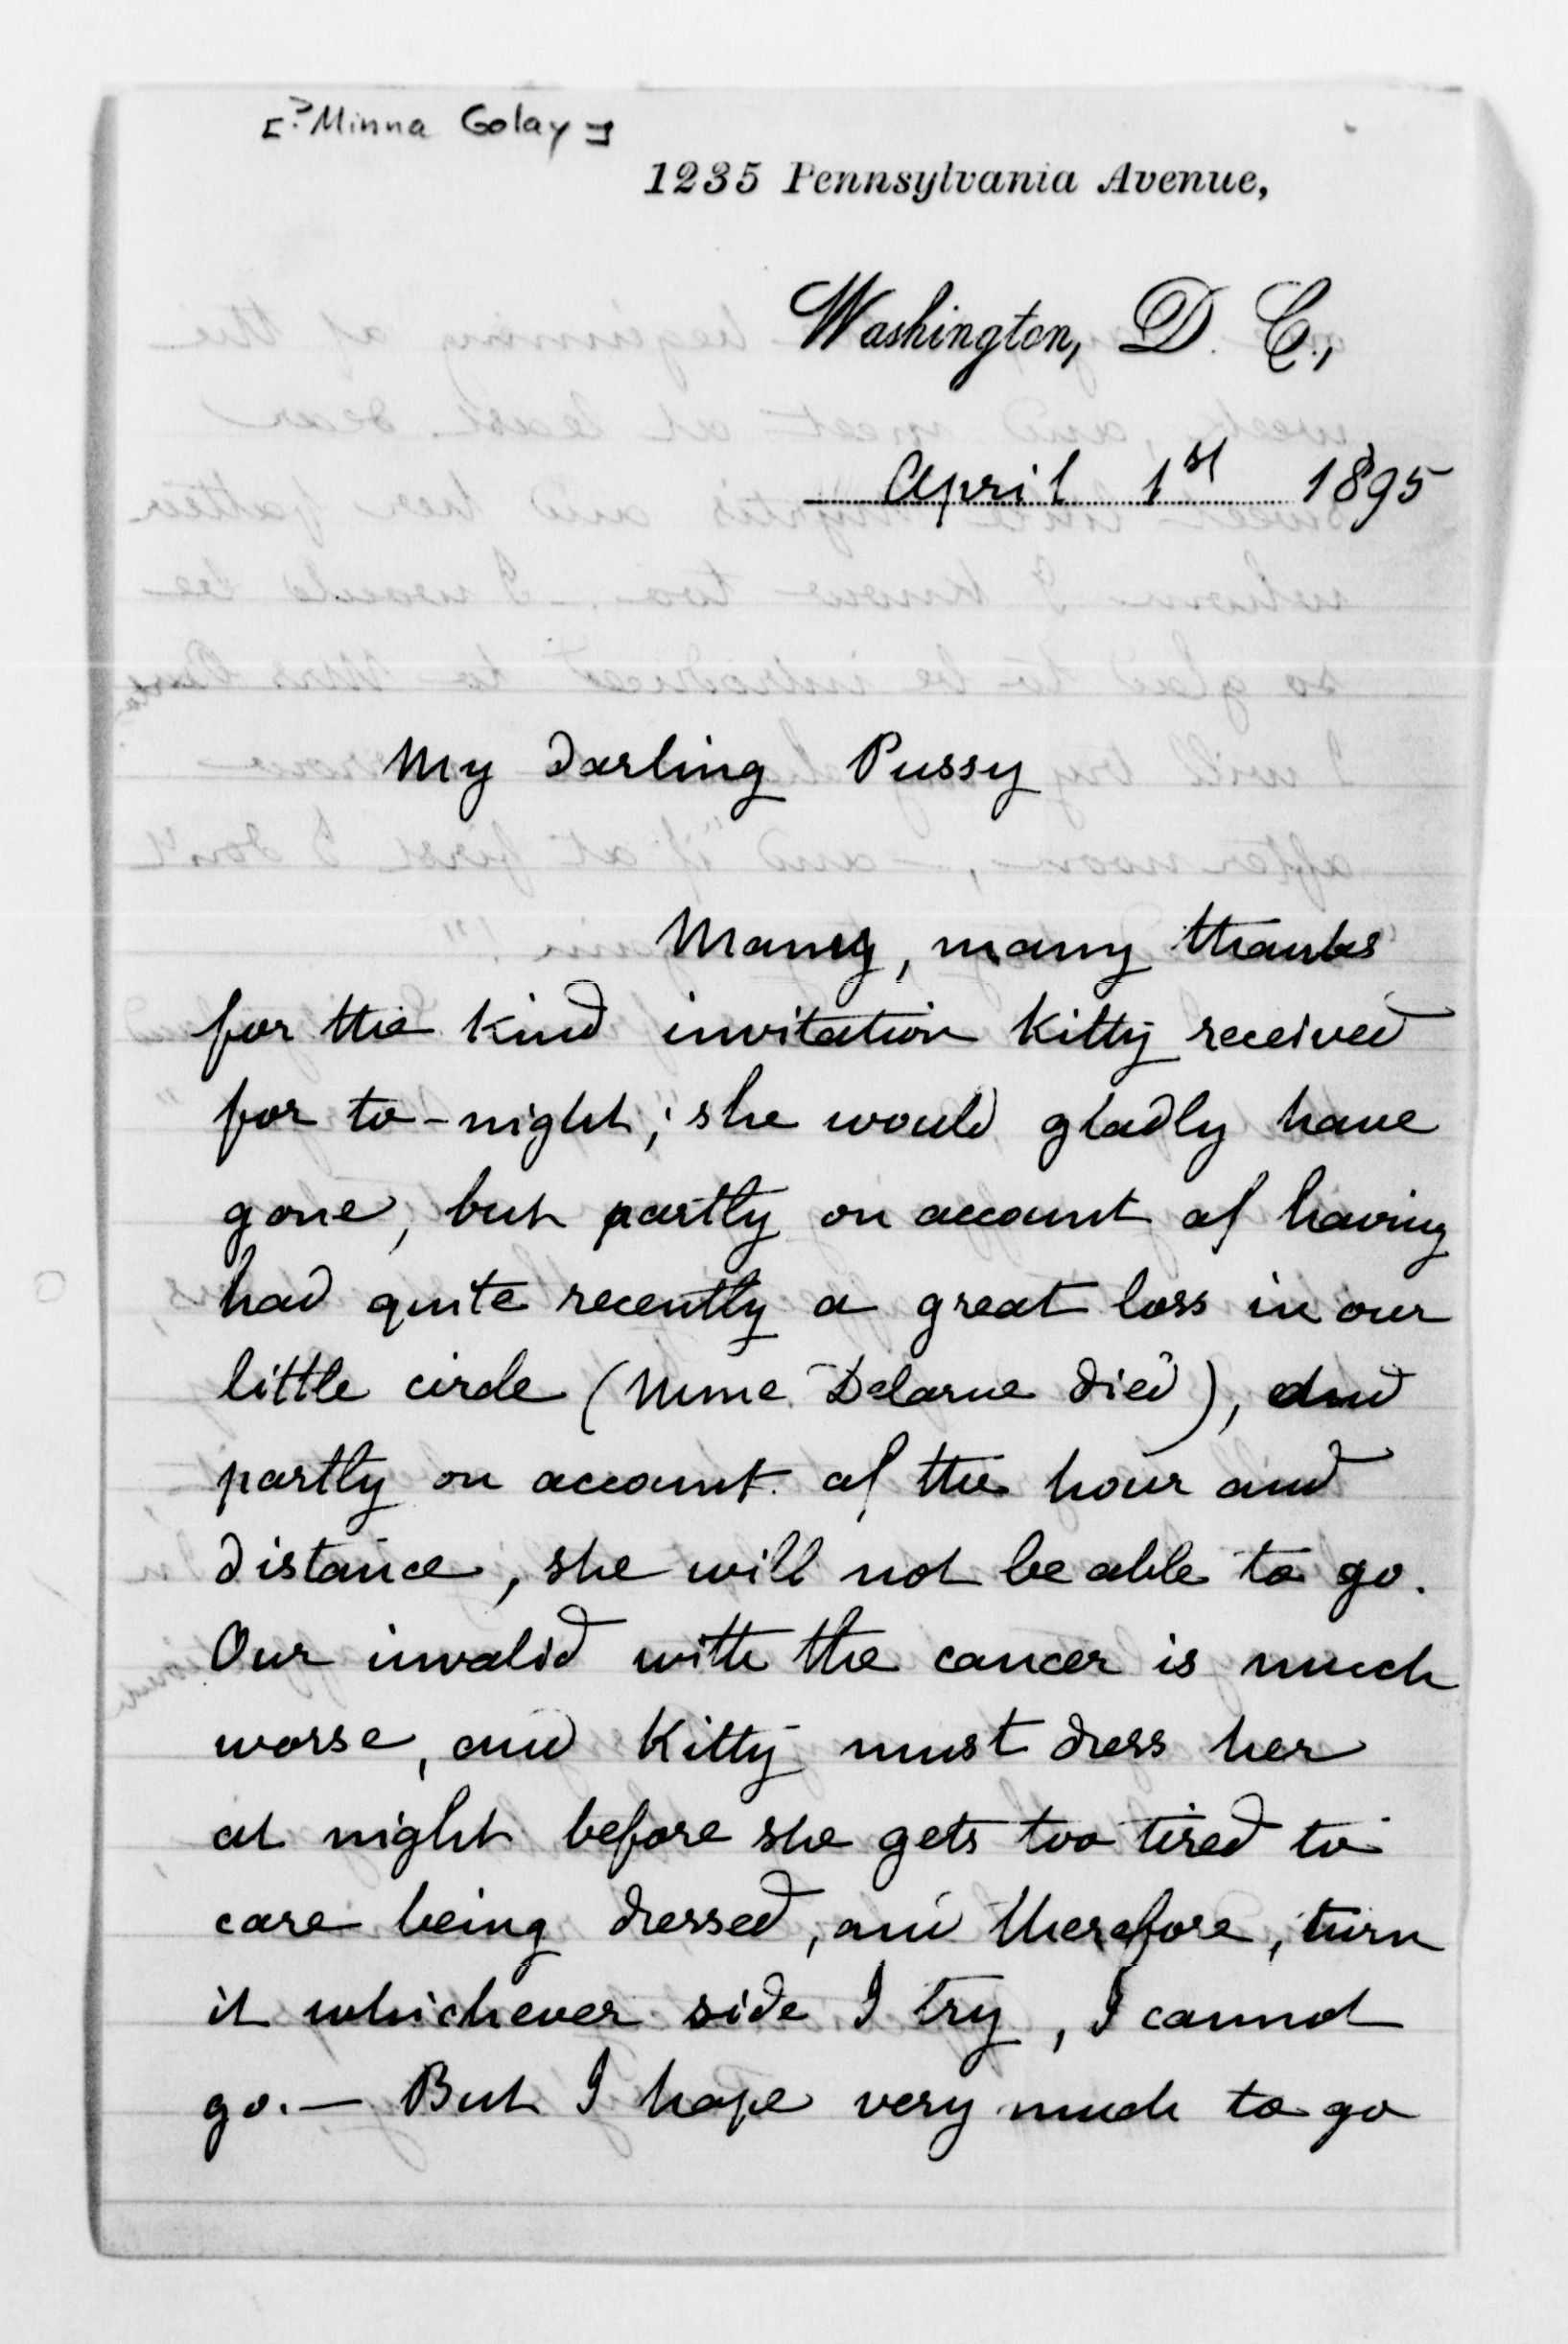 [?Minna Golay]
1235 Pennsylvania Avenue,
Washington, D. C.,
April 1st 1895
My darling Pussy
Many, many thanks
for the kind invitation Kitty received
for to-night; she would gladly have
gone, but partly on account of having
had quite recently a great loss in our
little circle (Mme. Delarue died), and
partly on account of the hour and
distance, she will not be able to go.
Our invalid with the cancer is much
worse, and Kitty must dress her
at night before she gets too tired to
care being dressed, and therefore, turn
it whichever side I try, I cannot
go. — But I hope very much to go